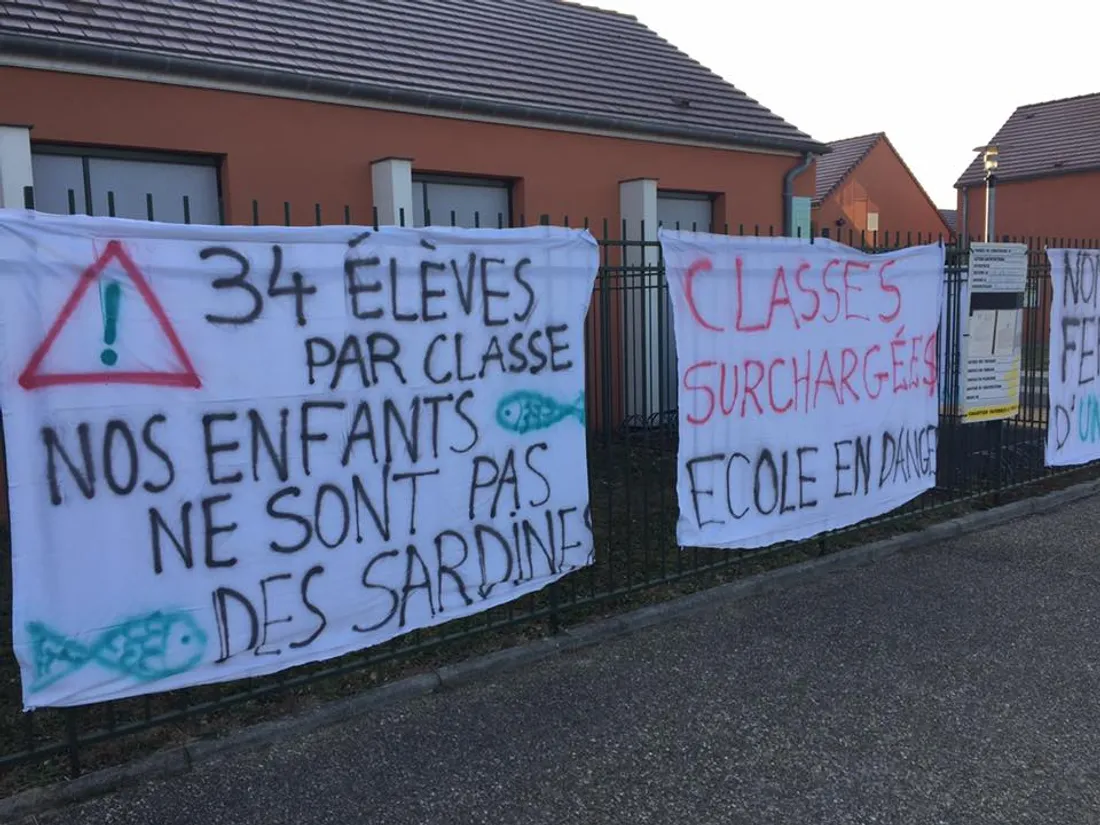 34 ÉLÈVES
PAR CLASSE
NOS ENFANTS
NE SONT PAS
DES SARDINES
CLASSES
SURCHARGÉES
ECOLE EN DANGE
NO
FE
D'UN